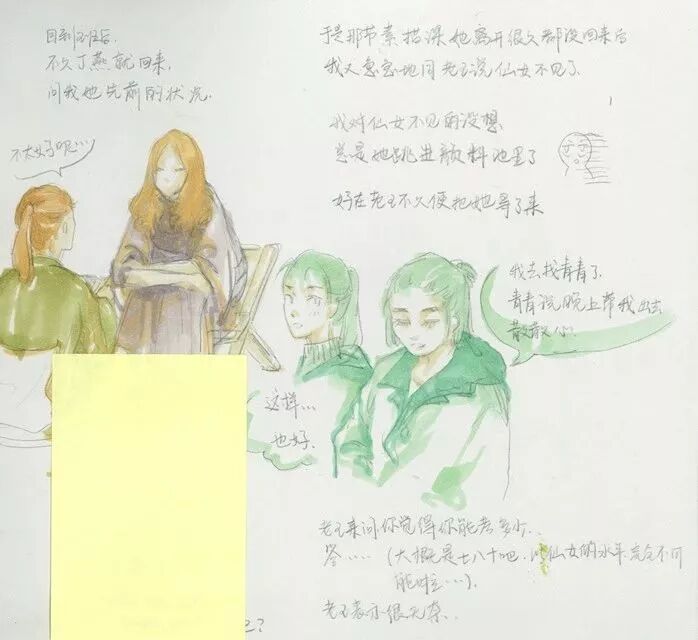 回到班后,
不久丁燕就回来,
问我她先前的状况.
不太好呢...
于是那节素描课她离开很久都没回来后
我又急急地同老王说仙女不见了.
我对仙女不见的设想
总是她跳进颜料池里了
好在老王不久便把她寻了来
我去找青青了.
青青说晚上带我出去
散散心.
这样...
也好.
老王来问你觉得你能考多少.
答......(大概是七八十吧.以仙女的水平完全不可
能啦...).
老王表示很无奈.
?